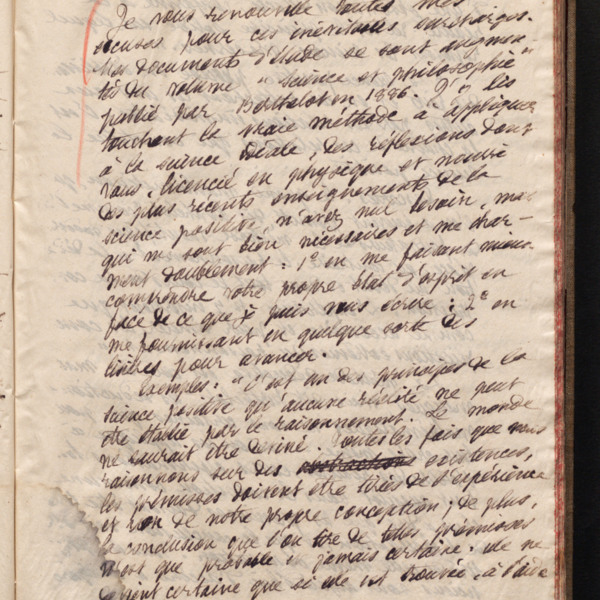 Je vous renouvelle toutes mes
excuses pour ces inévitables surcharges.
Mes documents d'étude se sont augmen-
tés du volume "Science et philosophie"
publié par Berthelot en 1886. J'y lis
touchant la vraie méthode à appliquer
à la science idéale, des réflexions dont
vous, licencié en physique et nourri
des plus récents enseignements de la
science positive, n'avez nul besoin, mais
qui me sont bien nécessaires et me char-
ment doublement : 1° en me faisant mieux
comprendre votre propre état d'esprit en
face de ce que je puis vous écrire ; 2° en
me fournissant en quelque sorte des
limites pour avancer.
Exemples : "C'est un des principes de la
science positive qu'aucune réalité ne peut
être établie par le raisonnement. Le monde
ne saurait être deviné. Toutes les fois que nous
raisonnons sur des abstractions existences,
les prémisses doivent être tirées de l'expérience
et non de notre propre conception ; de plus,
la conclusion que l'on tire de telles prémisses
n'est que probable et jamais certaine. Elle ne
devient certaine que si elle est trouvée, à l'aide